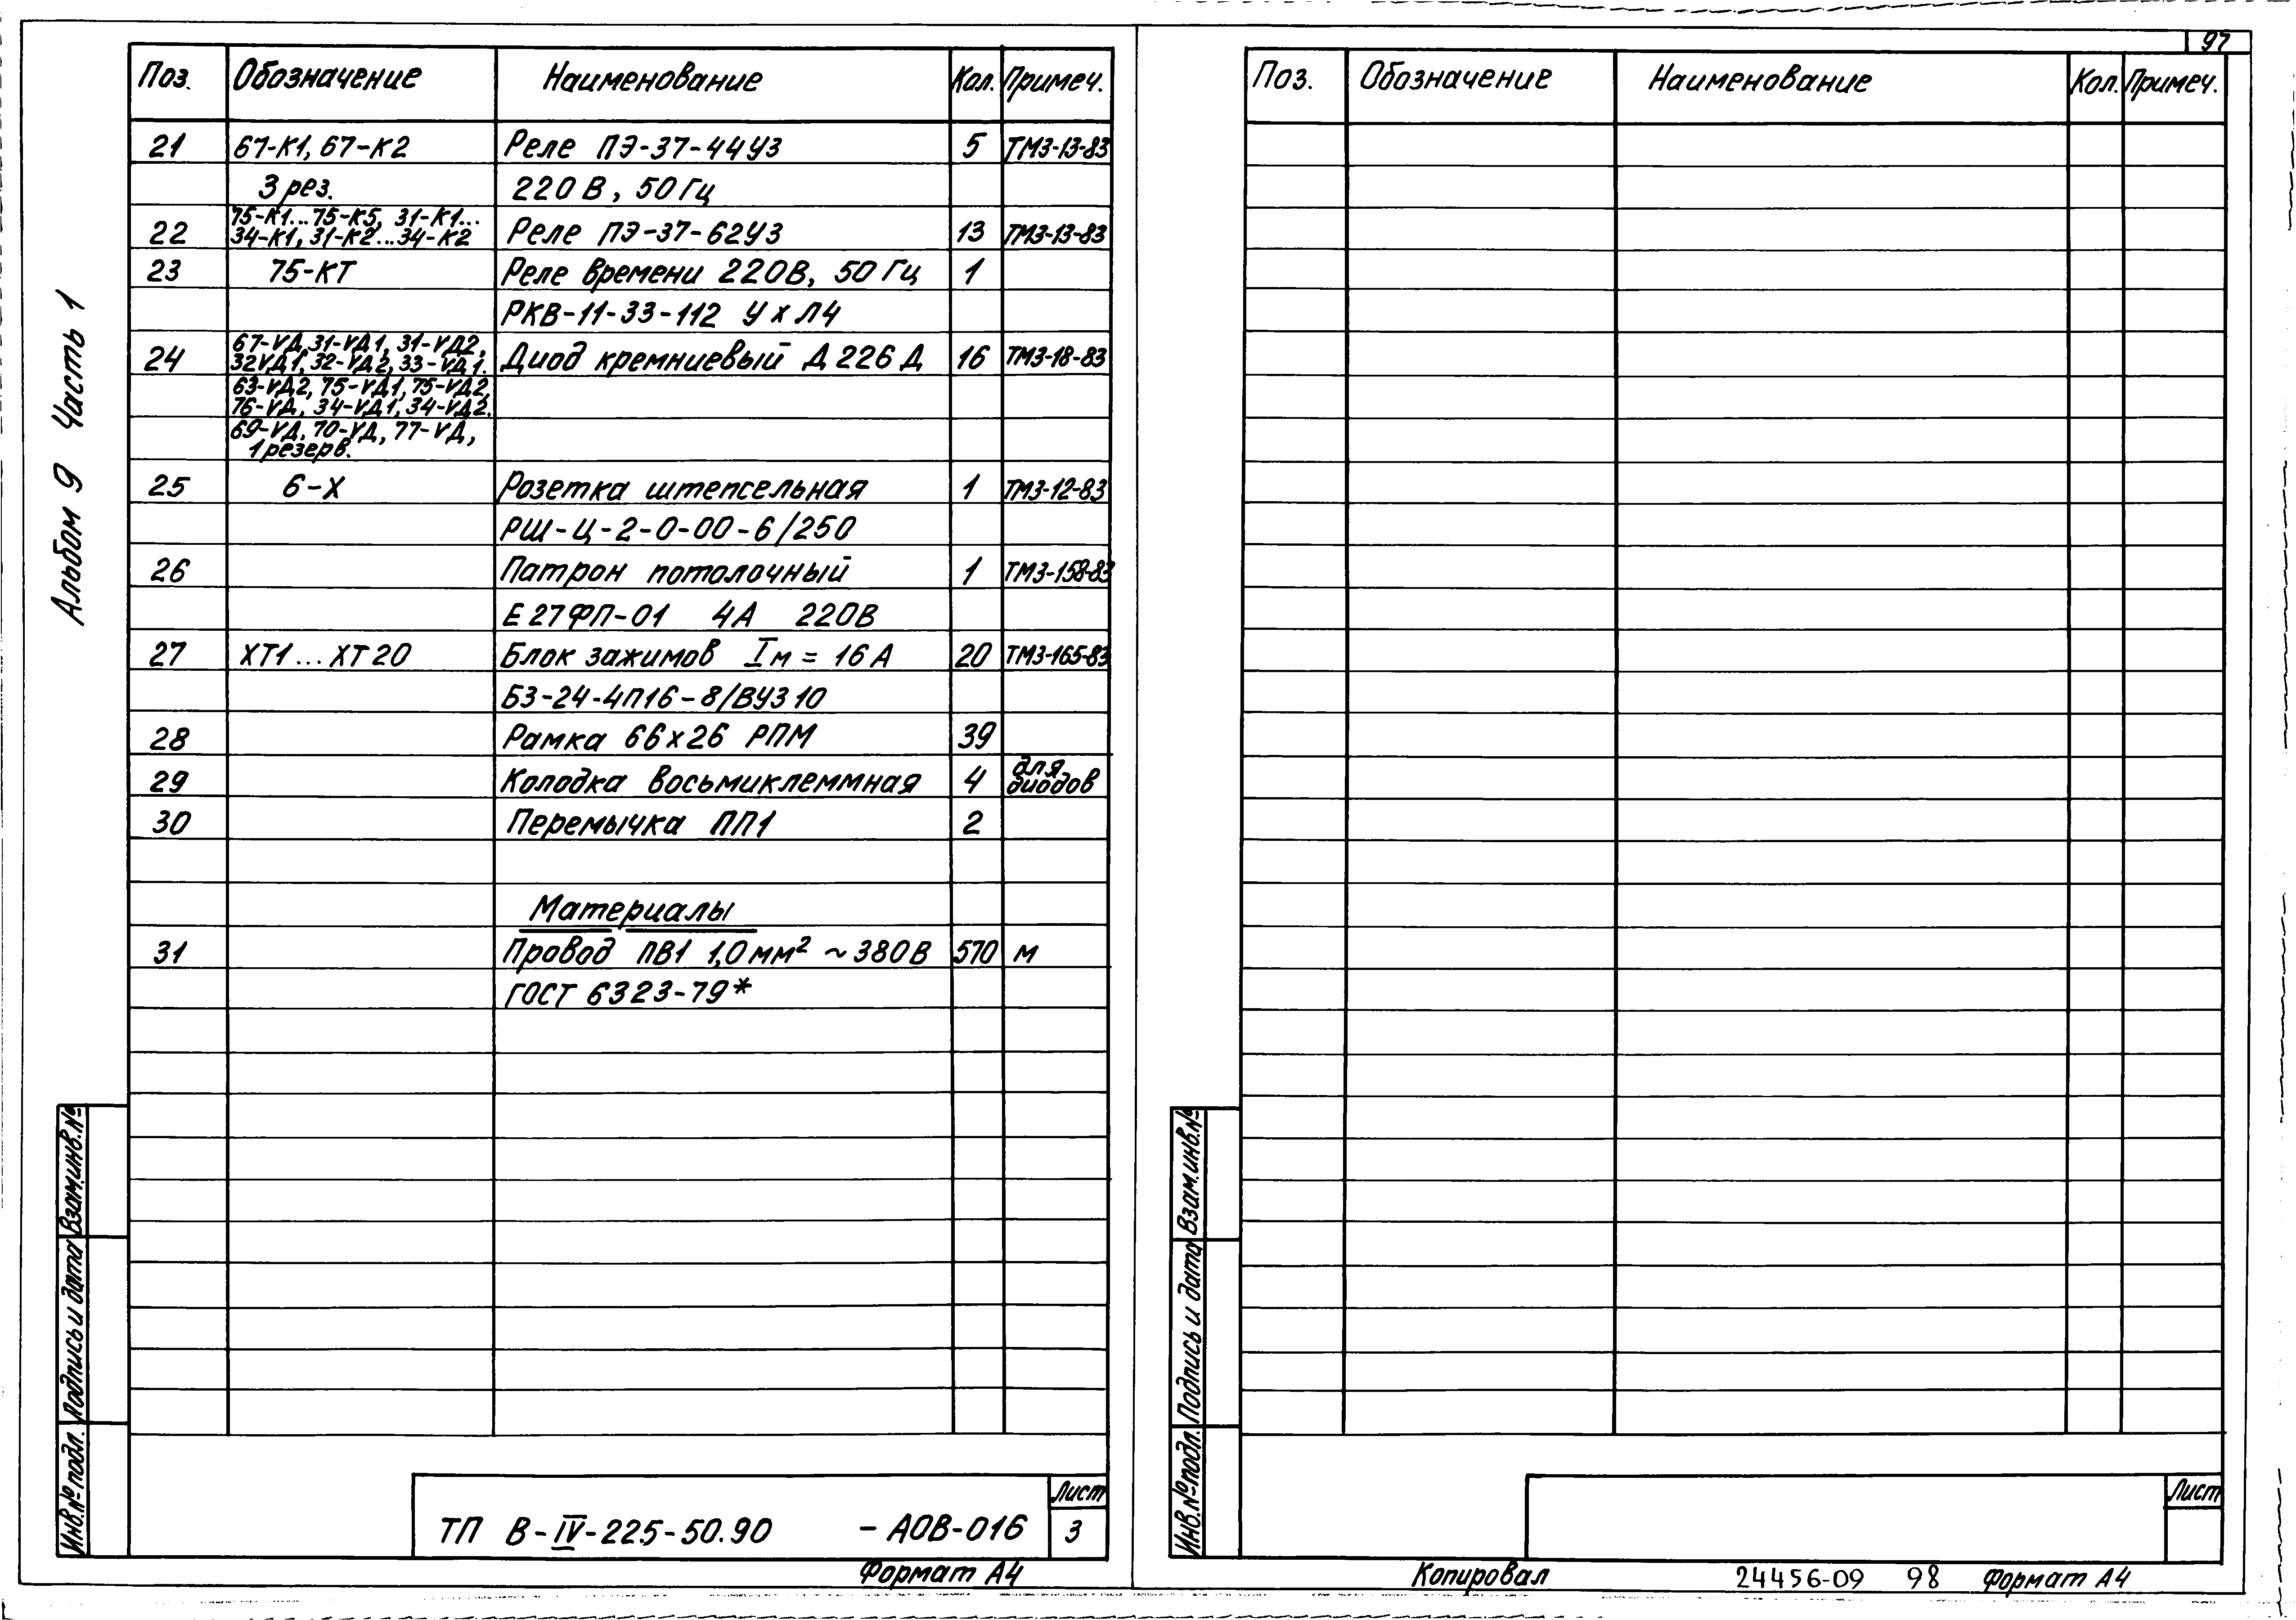 97
Альбом 9 Часть 1
Поз. Обозначение Наименование Кол. Примеч.
21 67-К1, 67-К2 Реле ПЭ-37-44У3 5 ТМ3-13-83
3 рез. 220 В, 50 Гц
75-К1...75-К5, 31-К1...
22 34-К1, 31-К2...34-К2 Реле ПЭ-37-62У3 13 ТМ3-13-83
23 75-КТ Реле времени 220В, 50 Гц 1
РКВ-11-33-112 УхЛ4
67-VД, 31-VД1, 31-VД2,
24 32VД1, 32-VД2, 33-VД1. Диод кремниевый Д226Д 16 ТМ3-18-83
63-VД2, 75-VД1, 75-VД2,
76-VД, 34-VД1, 34-VД2.
69-VД, 70-VД, 77-VД,
1 резерв.
25 6-Х Розетка штепсельная 1 ТМ3-12-83
РШ-Ц-2-0-00-6/250
26 Патрон потолочный 1 ТМ3-158-83
Е27ФП-01 4А 220В
27 ХТ1...ХТ20 Блок зажимов Iм = 16 А 20 ТМ3-165-83
Б3-24-4П16-8/ВУ3 10
28 Рамка 66х26 РПМ 39
29 Колодка восьмиклеммная 4 для диодов
30 Перемычка ПП1 2
Материалы
31 Провод ПВ1 1,0 мм² ~380В 570 м
ГОСТ 6323-79*
Взам.инв.№
Подпись и дата
Инв.№ подл.
ТП В-IV-225-50.90 -АОВ-016
Лист
3
Формат А4
Поз. Обозначение Наименование Кол. Примеч.
Взам.инв.№
Подпись и дата
Инв.№подл.
Лист
Копировал 24456-09 98 Формат А4